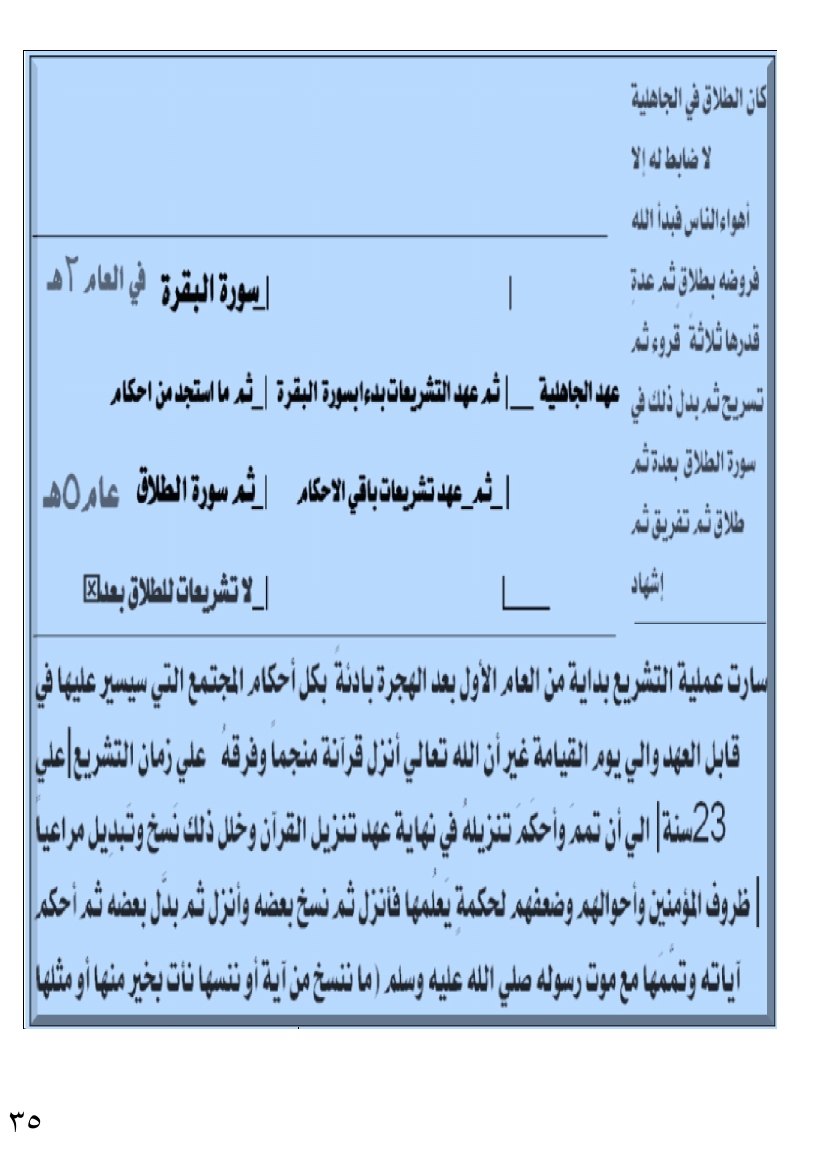 كان الطلاق في الجاهلية
لا ضابط له إلا
أهواء الناس فبدأ الله
فروضه بطلاقٍ ثم عدةٍ
قدرها ثلاثةَ قروء ثم
تسريح ثم بدل ذلك في
سورة الطلاق بعدة ثم
طلاق ثم تفريق ثم
إشهاد
| |_سورة البقرة في العام ٢هـ
عهد الجاهلية __| ثم عهد التشريعات بدءا بسورة البقرة |_ثم ما استجد من احكام
|_ثم_عهد تشريعات باقي الاحكام |_ثم سورة الطلاق عام٥هـ
|___ |_لا تشريعات للطلاق بعد
سارت عملية التشريع بداية من العام الأول بعد الهجرة بادئةً بكل أحكام المجتمع التي سيسير عليها في
قابل العهد والي يوم القيامة غير أن الله تعالي أنزل قرآنة منجماً وفرقهُ علي زمان التشريع|علي
23سنة| الي أن تممَ وأحكَمَ تنزيلهُ في نهاية عهد تنزيل القرآن وخلل ذلك نَسخ وتَبدِيل مراعياً
| ظروف المؤمنين وأحوالهم وضعفهم لحكمةٍ يَعلُمها فأنزل ثم نسخ بعضه وأنزل ثم بدَّل بعضه ثم أحكم
آياته وتمَّمَها مع موت رسوله صلي الله عليه وسلم (ما ننسخ من آية أو ننسها نأت بخير منها أو مثلها
٣٥